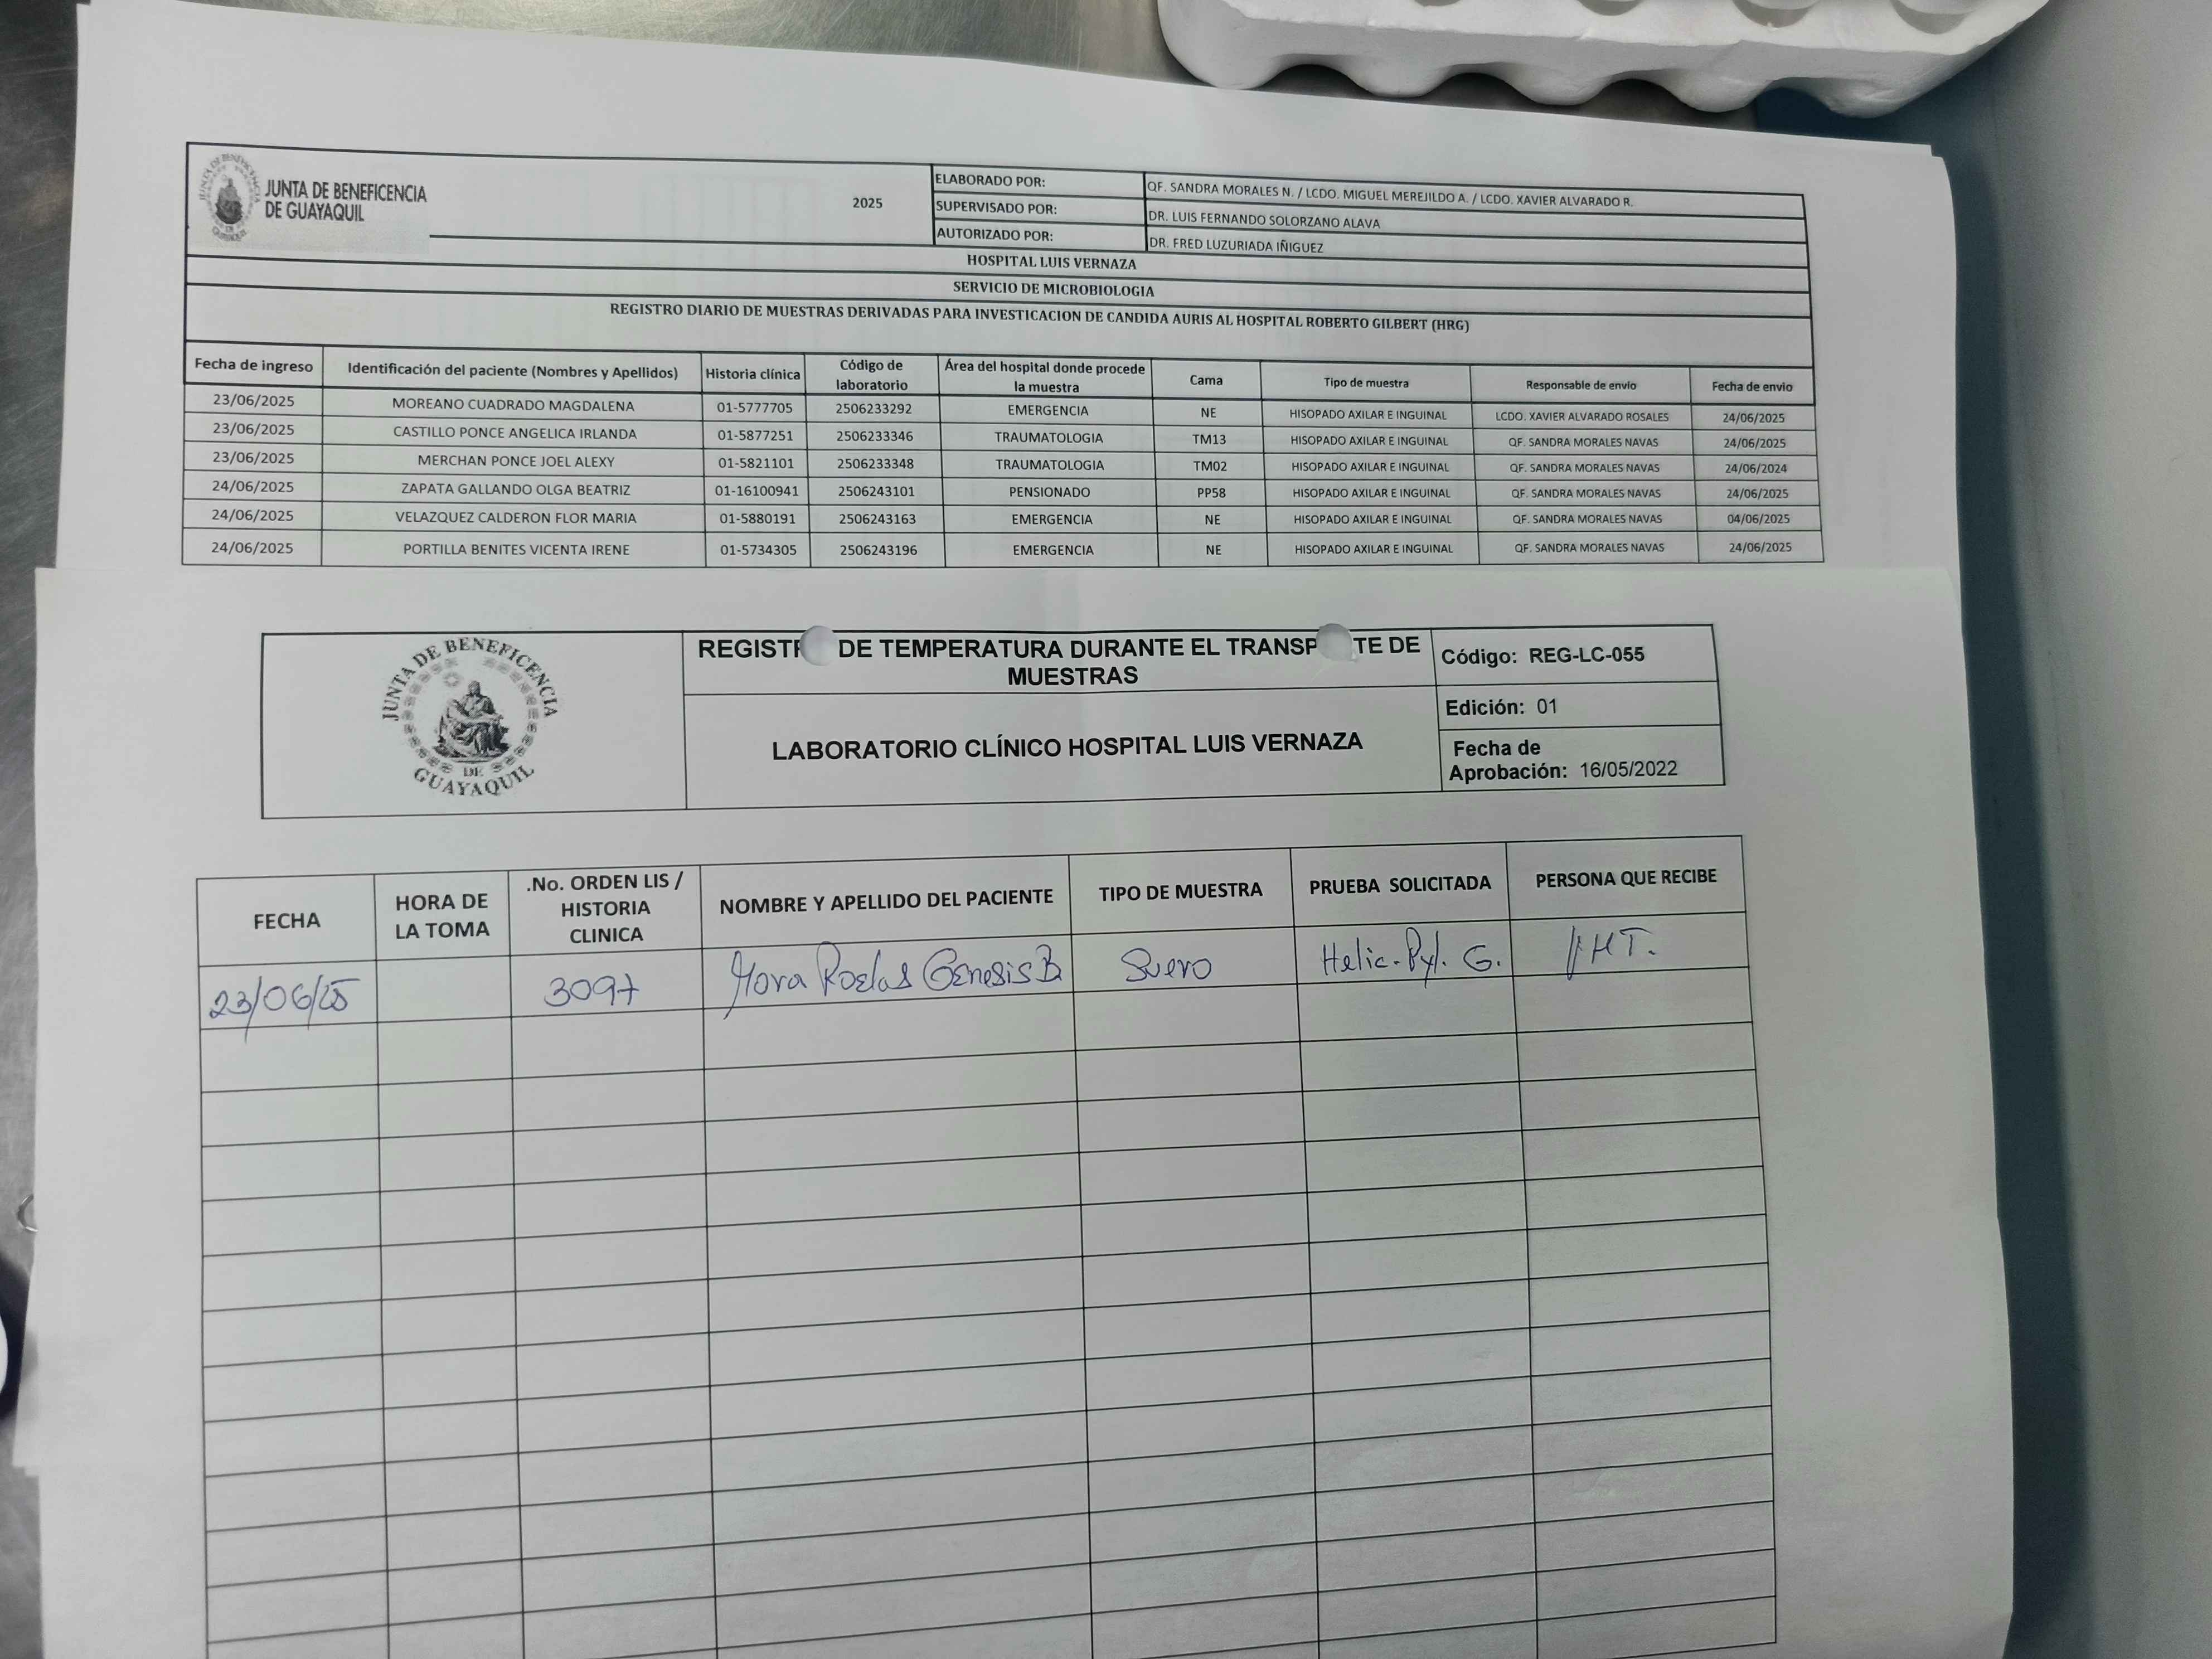 JUNTA DE BENEFICENCIA
DE GUAYAQUIL
2025
ELABORADO POR: QF. SANDRA MORALES N. / LCDO. MIGUEL MEREJILDO A. / LCDO. XAVIER ALVARADO R.
SUPERVISADO POR: DR. LUIS FERNANDO SOLORZANO ALAVA
AUTORIZADO POR: DR. FRED LUZURIADA IÑIGUEZ
HOSPITAL LUIS VERNAZA
SERVICIO DE MICROBIOLOGIA
REGISTRO DIARIO DE MUESTRAS DERIVADAS PARA INVESTICACION DE CANDIDA AURIS AL HOSPITAL ROBERTO GILBERT (HRG)
Fecha de ingreso Identificación del paciente (Nombres y Apellidos) Historia clínica Código de laboratorio Área del hospital donde procede la muestra Cama Tipo de muestra Responsable de envío Fecha de envio
23/06/2025 MOREANO CUADRADO MAGDALENA 01-5777705 2506233292 EMERGENCIA NE HISOPADO AXILAR E INGUINAL LCDO. XAVIER ALVARADO ROSALES 24/06/2025
23/06/2025 CASTILLO PONCE ANGELICA IRLANDA 01-5877251 2506233346 TRAUMATOLOGIA TM13 HISOPADO AXILAR E INGUINAL QF. SANDRA MORALES NAVAS 24/06/2025
23/06/2025 MERCHAN PONCE JOEL ALEXY 01-5821101 2506233348 TRAUMATOLOGIA TM02 HISOPADO AXILAR E INGUINAL QF. SANDRA MORALES NAVAS 24/06/2024
24/06/2025 ZAPATA GALLANDO OLGA BEATRIZ 01-16100941 2506243101 PENSIONADO PP58 HISOPADO AXILAR E INGUINAL QF. SANDRA MORALES NAVAS 24/06/2025
24/06/2025 VELAZQUEZ CALDERON FLOR MARIA 01-5880191 2506243163 EMERGENCIA NE HISOPADO AXILAR E INGUINAL QF. SANDRA MORALES NAVAS 04/06/2025
24/06/2025 PORTILLA BENITES VICENTA IRENE 01-5734305 2506243196 EMERGENCIA NE HISOPADO AXILAR E INGUINAL QF. SANDRA MORALES NAVAS 24/06/2025
JUNTA DE BENEFICENCIA DE GUAYAQUIL
REGISTR DE TEMPERATURA DURANTE EL TRANSP TE DE
MUESTRAS
LABORATORIO CLÍNICO HOSPITAL LUIS VERNAZA
Código: REG-LC-055
Edición: 01
Fecha de
Aprobación: 16/05/2022
FECHA HORA DE LA TOMA .No. ORDEN LIS / HISTORIA CLINICA NOMBRE Y APELLIDO DEL PACIENTE TIPO DE MUESTRA PRUEBA SOLICITADA PERSONA QUE RECIBE
23/06/25 3097 Genesis B. Suero Helic. Pyl. G.